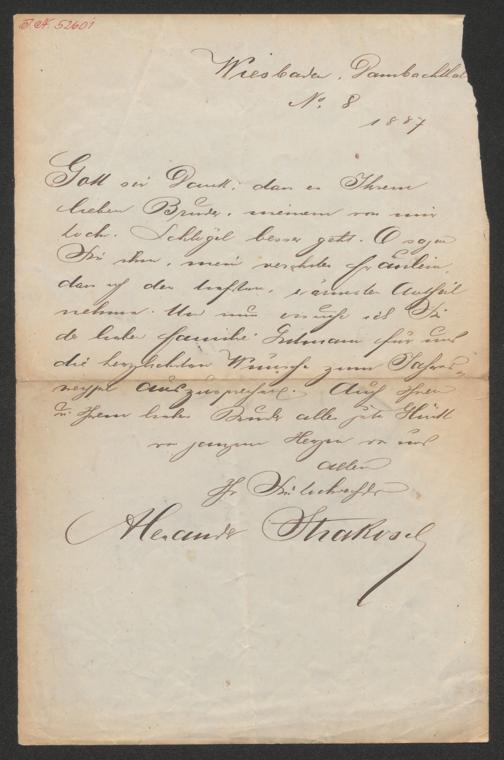 J.N. 52601
Wiesbaden, Dambachthal
No. 8
1887
Gott sei Dank, dass es Ihrem
lieben Bruder, meinem von mir
hoch. Schlögel besser geht. O sagen
Sie ihm, mein verehrtes Fräulein,
dass ich den Antheil
nehme. Und nun ich Sie
der lieben Familie für uns
die herzlichsten Wünsche zum Jahres-
wechsel auszusprechen. Auch Ihnen
u. Ihrem lieben Bruder alles gute Glück
von ganzem Herzen von uns
allen
Ihr
Alexander Strakosch